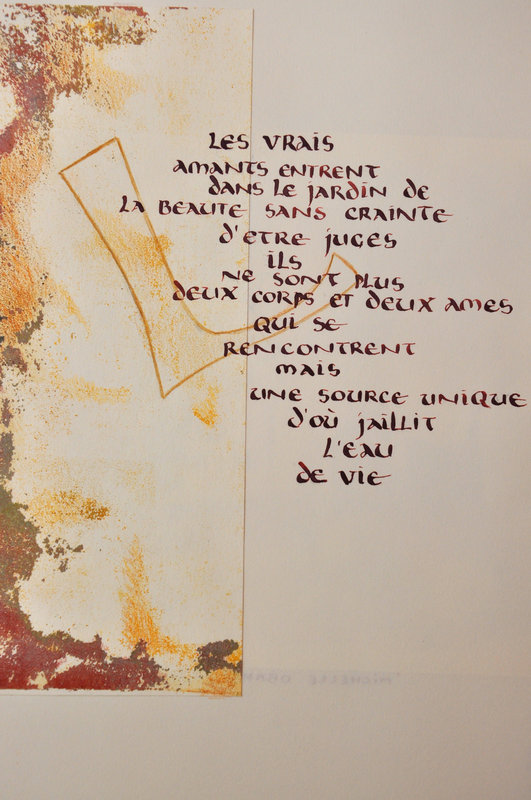 LES VRAIS
AMANTS ENTRENT
DANS LE JARDIN DE
LA BEAUTE SANS CRAINTE
D'ETRE JUGES
ILS
NE SONT PLUS
DEUX CORPS ET DEUX AMES
QUI SE
RENCONTRENT
MAIS
UNE SOURCE UNIQUE
D'OÙ JAILLIT
L'EAU
DE VIE